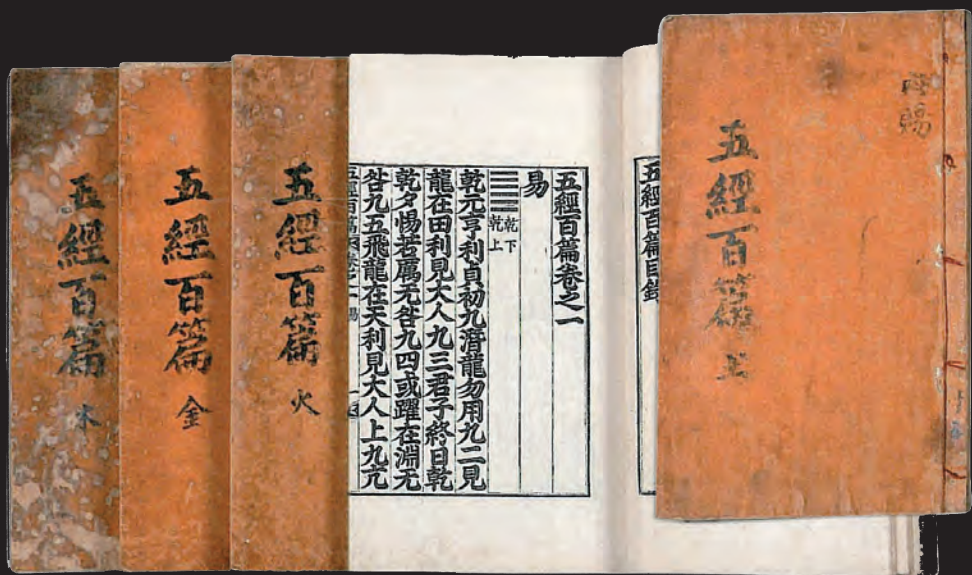 內賜
五經百篇
五經百篇目錄
五經百篇卷之一
易
乾下
乾上
乾元亨利貞初九潛龍勿用九二見
龍在田利見大人九三君子終日乾
乾夕惕若厲无咎九四或躍在淵无
咎九五飛龍在天利見大人上九亢
五經百篇 火
五經百篇 金
五經百篇